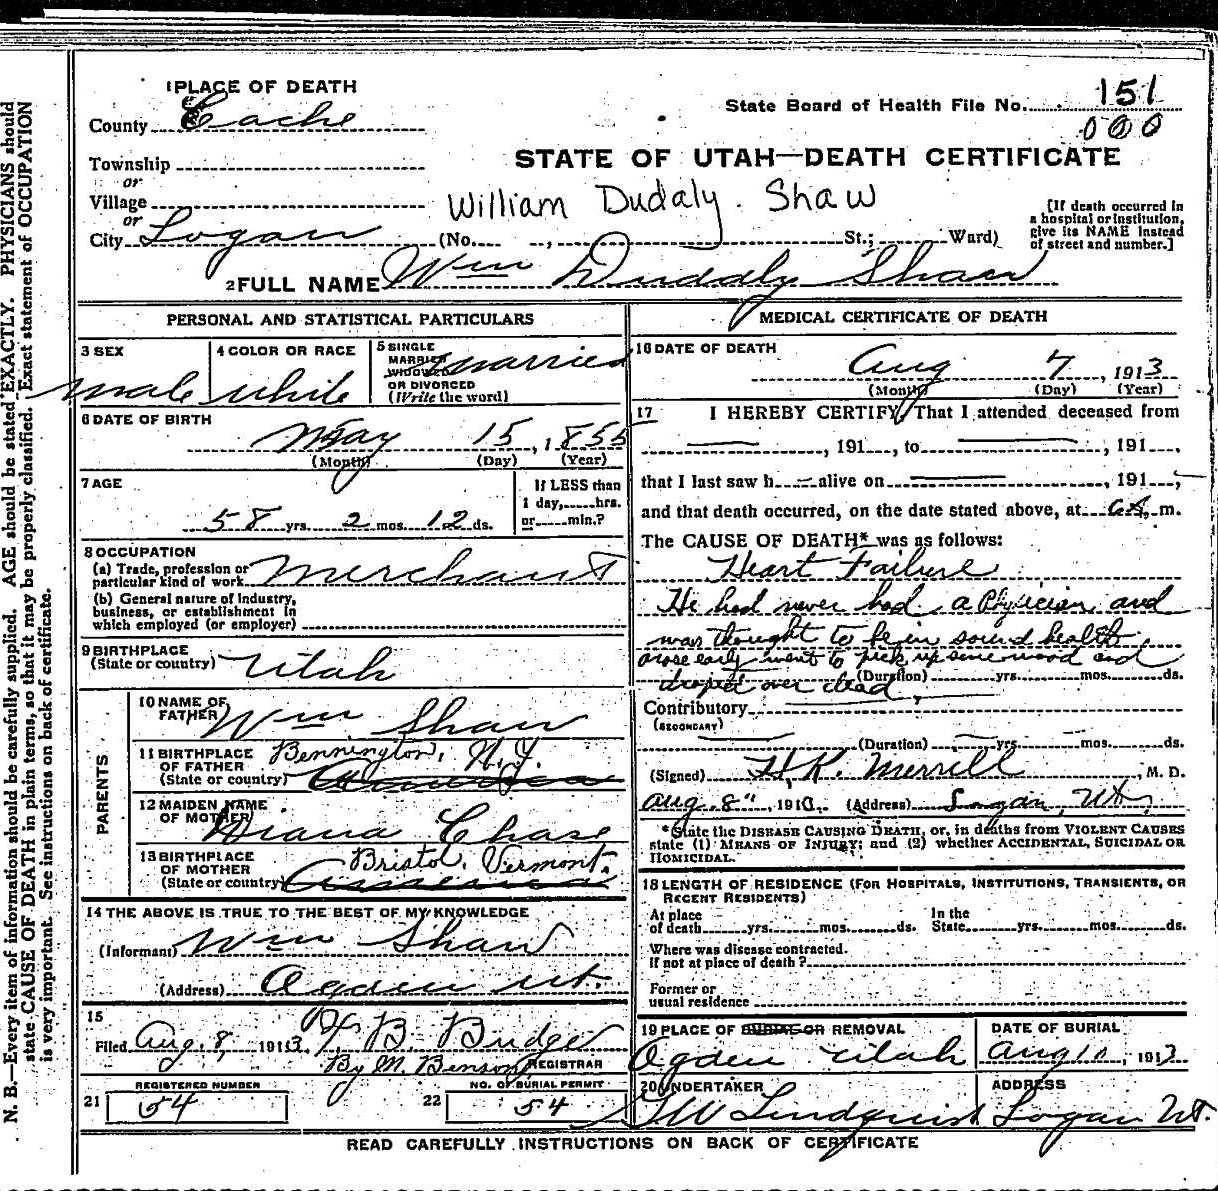 1 PLACE OF DEATH
County Cache
State Board of Health File No. 151
000
Township
or
Village
or
City Logan (No. , St.; Ward)
STATE OF UTAH—DEATH CERTIFICATE
William Dudaly. Shaw
[If death occurred in
a hospital or institution,
give its NAME instead
of street and number.]
2 FULL NAME Wm Dudaly Shaw
PERSONAL AND STATISTICAL PARTICULARS
3 SEX
male
4 COLOR OR RACE
white
5 SINGLE
MARRIED
WIDOWED
OR DIVORCED
(Write the word)
married
6 DATE OF BIRTH
May 15, 1855
(Month) (Day) (Year)
7 AGE
58 yrs. 2 mos. 12 ds.
If LESS than
1 day, hrs.
or min.?
8 OCCUPATION
(a) Trade, profession or
particular kind of work Merchant
(b) General nature of industry,
business, or establishment in
which employed (or employer)
9 BIRTHPLACE
(State or country) Utah
PARENTS
10 NAME OF
FATHER Wm Shaw
11 BIRTHPLACE
OF FATHER
(State or country)
Bennington, N.Y.
12 MAIDEN NAME
OF MOTHER
Diana Chase
13 BIRTHPLACE
OF MOTHER
(State or country)
Bristol, Vermont.
14 THE ABOVE IS TRUE TO THE BEST OF MY KNOWLEDGE
(Informant) Wm Shaw
(Address) Ogden Ut.
15
Filed Aug. 8, 1913 B Budge
By M. Benson REGISTRAR
REGISTERED NUMBER
21 54
NO. OF BURIAL PERMIT
22 54
MEDICAL CERTIFICATE OF DEATH
16 DATE OF DEATH
Aug 7, 1913
(Month) (Day) (Year)
17 I HEREBY CERTIFY, That I attended deceased from
, 191 , to , 191 ,
that I last saw h alive on , 191 ,
and that death occurred, on the date stated above, at m.
The CAUSE OF DEATH* was as follows:
Heart Failure
He had never had a Physician and
was thought to be in sound health
arose early went to pick up some wood and
droped over dead
(Duration) yrs. mos. ds.
Contributory
(SECONDARY)
(Duration) yrs. mos. ds.
(Signed) H.K. Merrill, M. D.
Aug. 8" , 191 (Address) Logan, Ut,
*State the DISEASE CAUSING DEATH, or, in deaths from VIOLENT CAUSES
state (1) MEANS OF INJURY; and (2) whether ACCIDENTAL, SUICIDAL OR
HOMICIDAL.
18 LENGTH OF RESIDENCE (FOR HOSPITALS, INSTITUTIONS, TRANSIENTS, OR
RECENT RESIDENTS)
At place
of death yrs. mos. ds.
In the
State yrs. mos. ds.
Where was disease contracted.
If not at place of death?
Former or
usual residence
19 PLACE OF BURIAL OR REMOVAL
Ogden Utah
DATE OF BURIAL
Aug 10, 1913
20 UNDERTAKER
Lindquist
ADDRESS
Logan Ut.
READ CAREFULLY INSTRUCTIONS ON BACK OF CERTIFICATE
N. B.—Every item of information should be carefully supplied. AGE should be stated EXACTLY. PHYSICIANS should
state CAUSE OF DEATH in plain terms, so that it may be properly classified. Exact statement of OCCUPATION
is very important. See instructions on back of certificate.